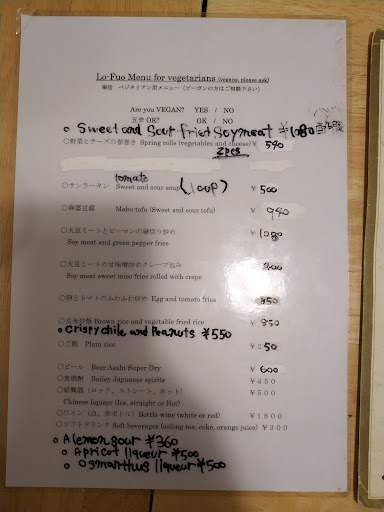 La-Fuo Menu for vegetarians (vegans, please ask)
楽房 ベジタリアン用メニュー（ビーガンの方はご相談下さい）
Are you VEGAN? YES / NO
五辛 OK? OK / NO
○ Sweet and Sour fried Soymeat ¥1080
○野菜とチーズの春巻き Spring rolls (vegetables and cheese) ¥ 540
2pcs
tomato
○サンラータン Sweet and sour soup (1 cup) ¥ 500
○麻婆豆腐 Mabo-tofu (Sweet and sour tofu) ¥ 940
○大豆ミートとピーマンの細切り炒め ¥ 1080
Soy meat and green pepper fries
○大豆ミートの甘味噌炒めクレープ包み
Soy meat sweet miso fries rolled with crepe
○卵とトマトのふわふわ炒め Egg and tomato fries 850
○玄米炒飯 Brown rice and vegetable fried rice ¥ 850
○ Crispy chile and Peanuts ¥550
○ご飯 Plain rice ¥250
○ビール Beer Asahi Super Dry ¥ 600
○麦焼酎 Bailey Japanese spirits ¥450
○紹興酒（ロック、ストレート、ホット） ¥500
Chinese liquor (Ice, straight or Hot)
○ワイン（白、赤ボトル）Bottle wine (white or red) ¥1800
○ソフトドリンク Soft beverages (oolong tea, coke, orange juice) ¥300
○ A lemon sour ¥360
○ Apricot liqueur ¥500
○ Osmanthus liqueur ¥500